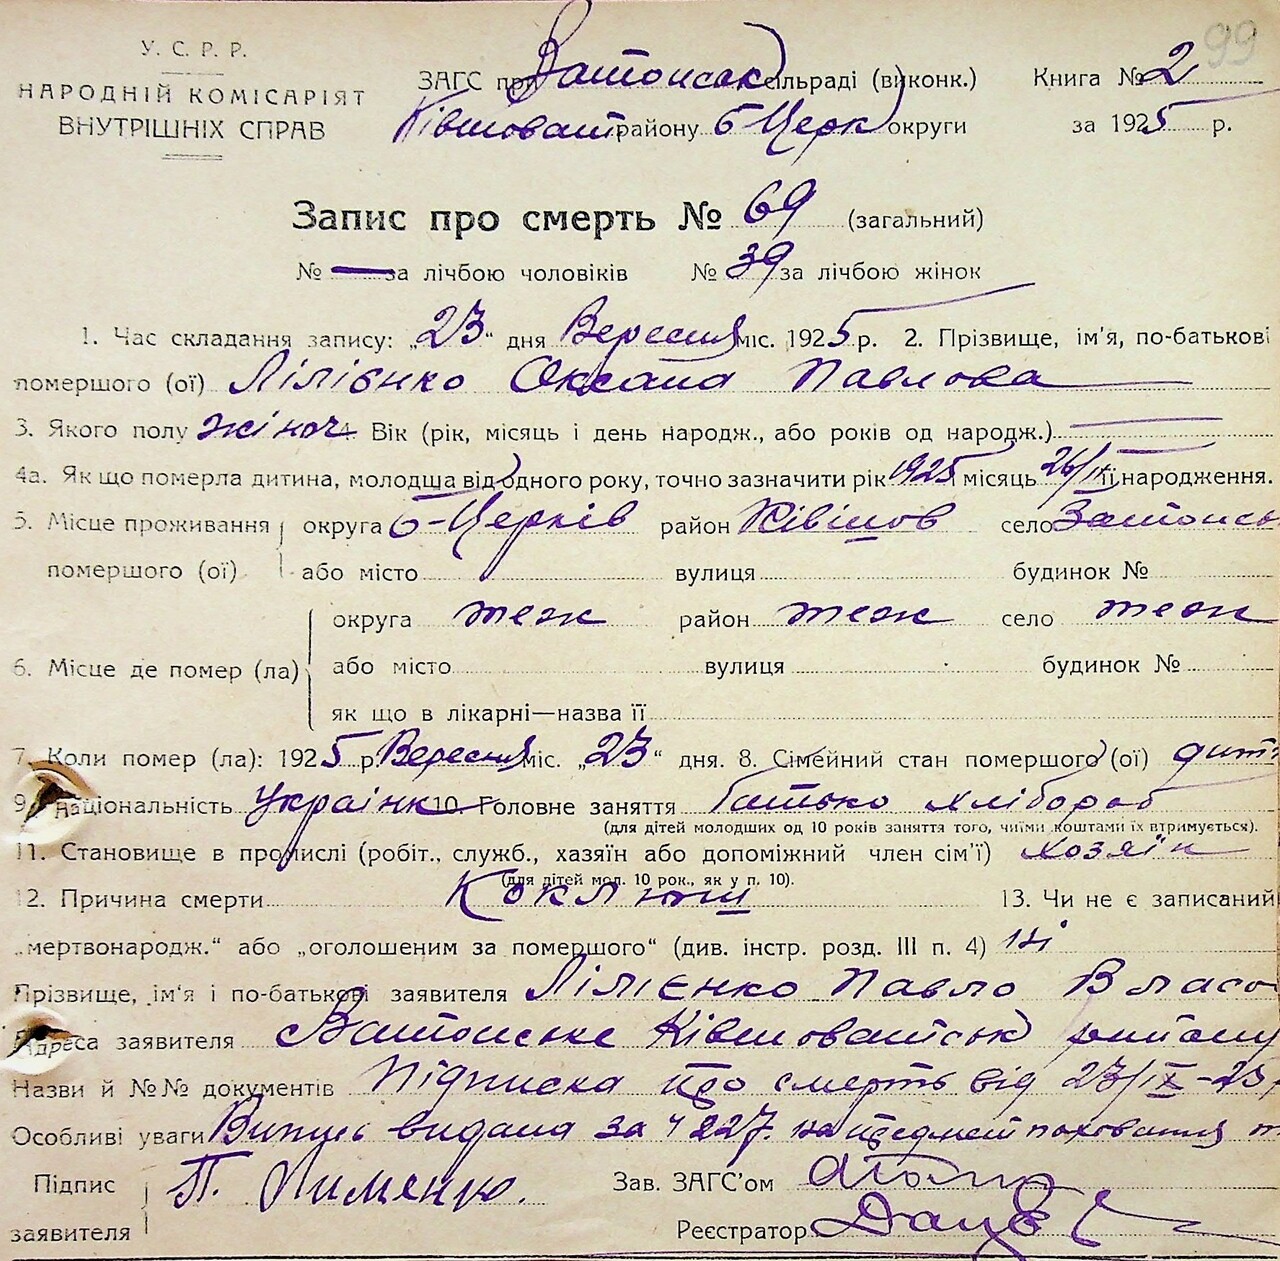 99
У. С. Р. Р.
НАРОДНІЙ КОМІСАРІЯТ
ВНУТРІШНІХ СПРАВ
ЗАГС при сільраді (виконк.)
Ківшоват району Б Церк округи
Книга № 2
за 1925 р.
Запис про смерть № 69 (загальний)
№ — за лічбою чоловіків № 39 за лічбою жінок
1. Час складання запису: „23“ дня Вересня міс. 1925 р. 2. Прізвище, ім'я, по-батькові
помершого (ої) Лілієнко Оксана Павлова
3. Якого полу жіноч 4. Вік (рік, місяць і день народж., або років од народж.)
4а. Як що померла дитина, молодша від одного року, точно зазначити рік 1925 і місяць її народження.
5. Місце проживання округа Б-Церків район Ківшов село
помершого (ої) або місто вулиця будинок №
округа теж район теж село теж
6. Місце де помер (ла) або місто вулиця будинок №
як що в лікарні—назва її
7. Коли помер (ла): 1925 р. Вересня міс. „23“ дня. 8. Сімейний стан помершого (ої) дит
9. Національність Українк 10. Головне заняття батько хлібороб
(для дітей молодших од 10 років заняття того, чиїми коштами їх втримується).
11. Становище в промислі (робіт., служб., хазяїн або допоміжний член сім'ї) хозяїн
(для дітей мол. 10 рок., як у п. 10).
12. Причина смерти Коклюш 13. Чи не є записаний
„мертвонародж.“ або „оголошеним за помершого“ (див. інстр. розд. III п. 4) ні
Прізвище, ім'я і по-батькові заявителя Лілієнко Павло Власо
Адреса заявителя Ківшоватськ району
Назви й №№ документів Підписка про смерть від 23/IX-25
Особливі уваги видана за ч 227. на предмет поховання
Підпис Зав. ЗАГС'ом
заявителя П. Реєстратор